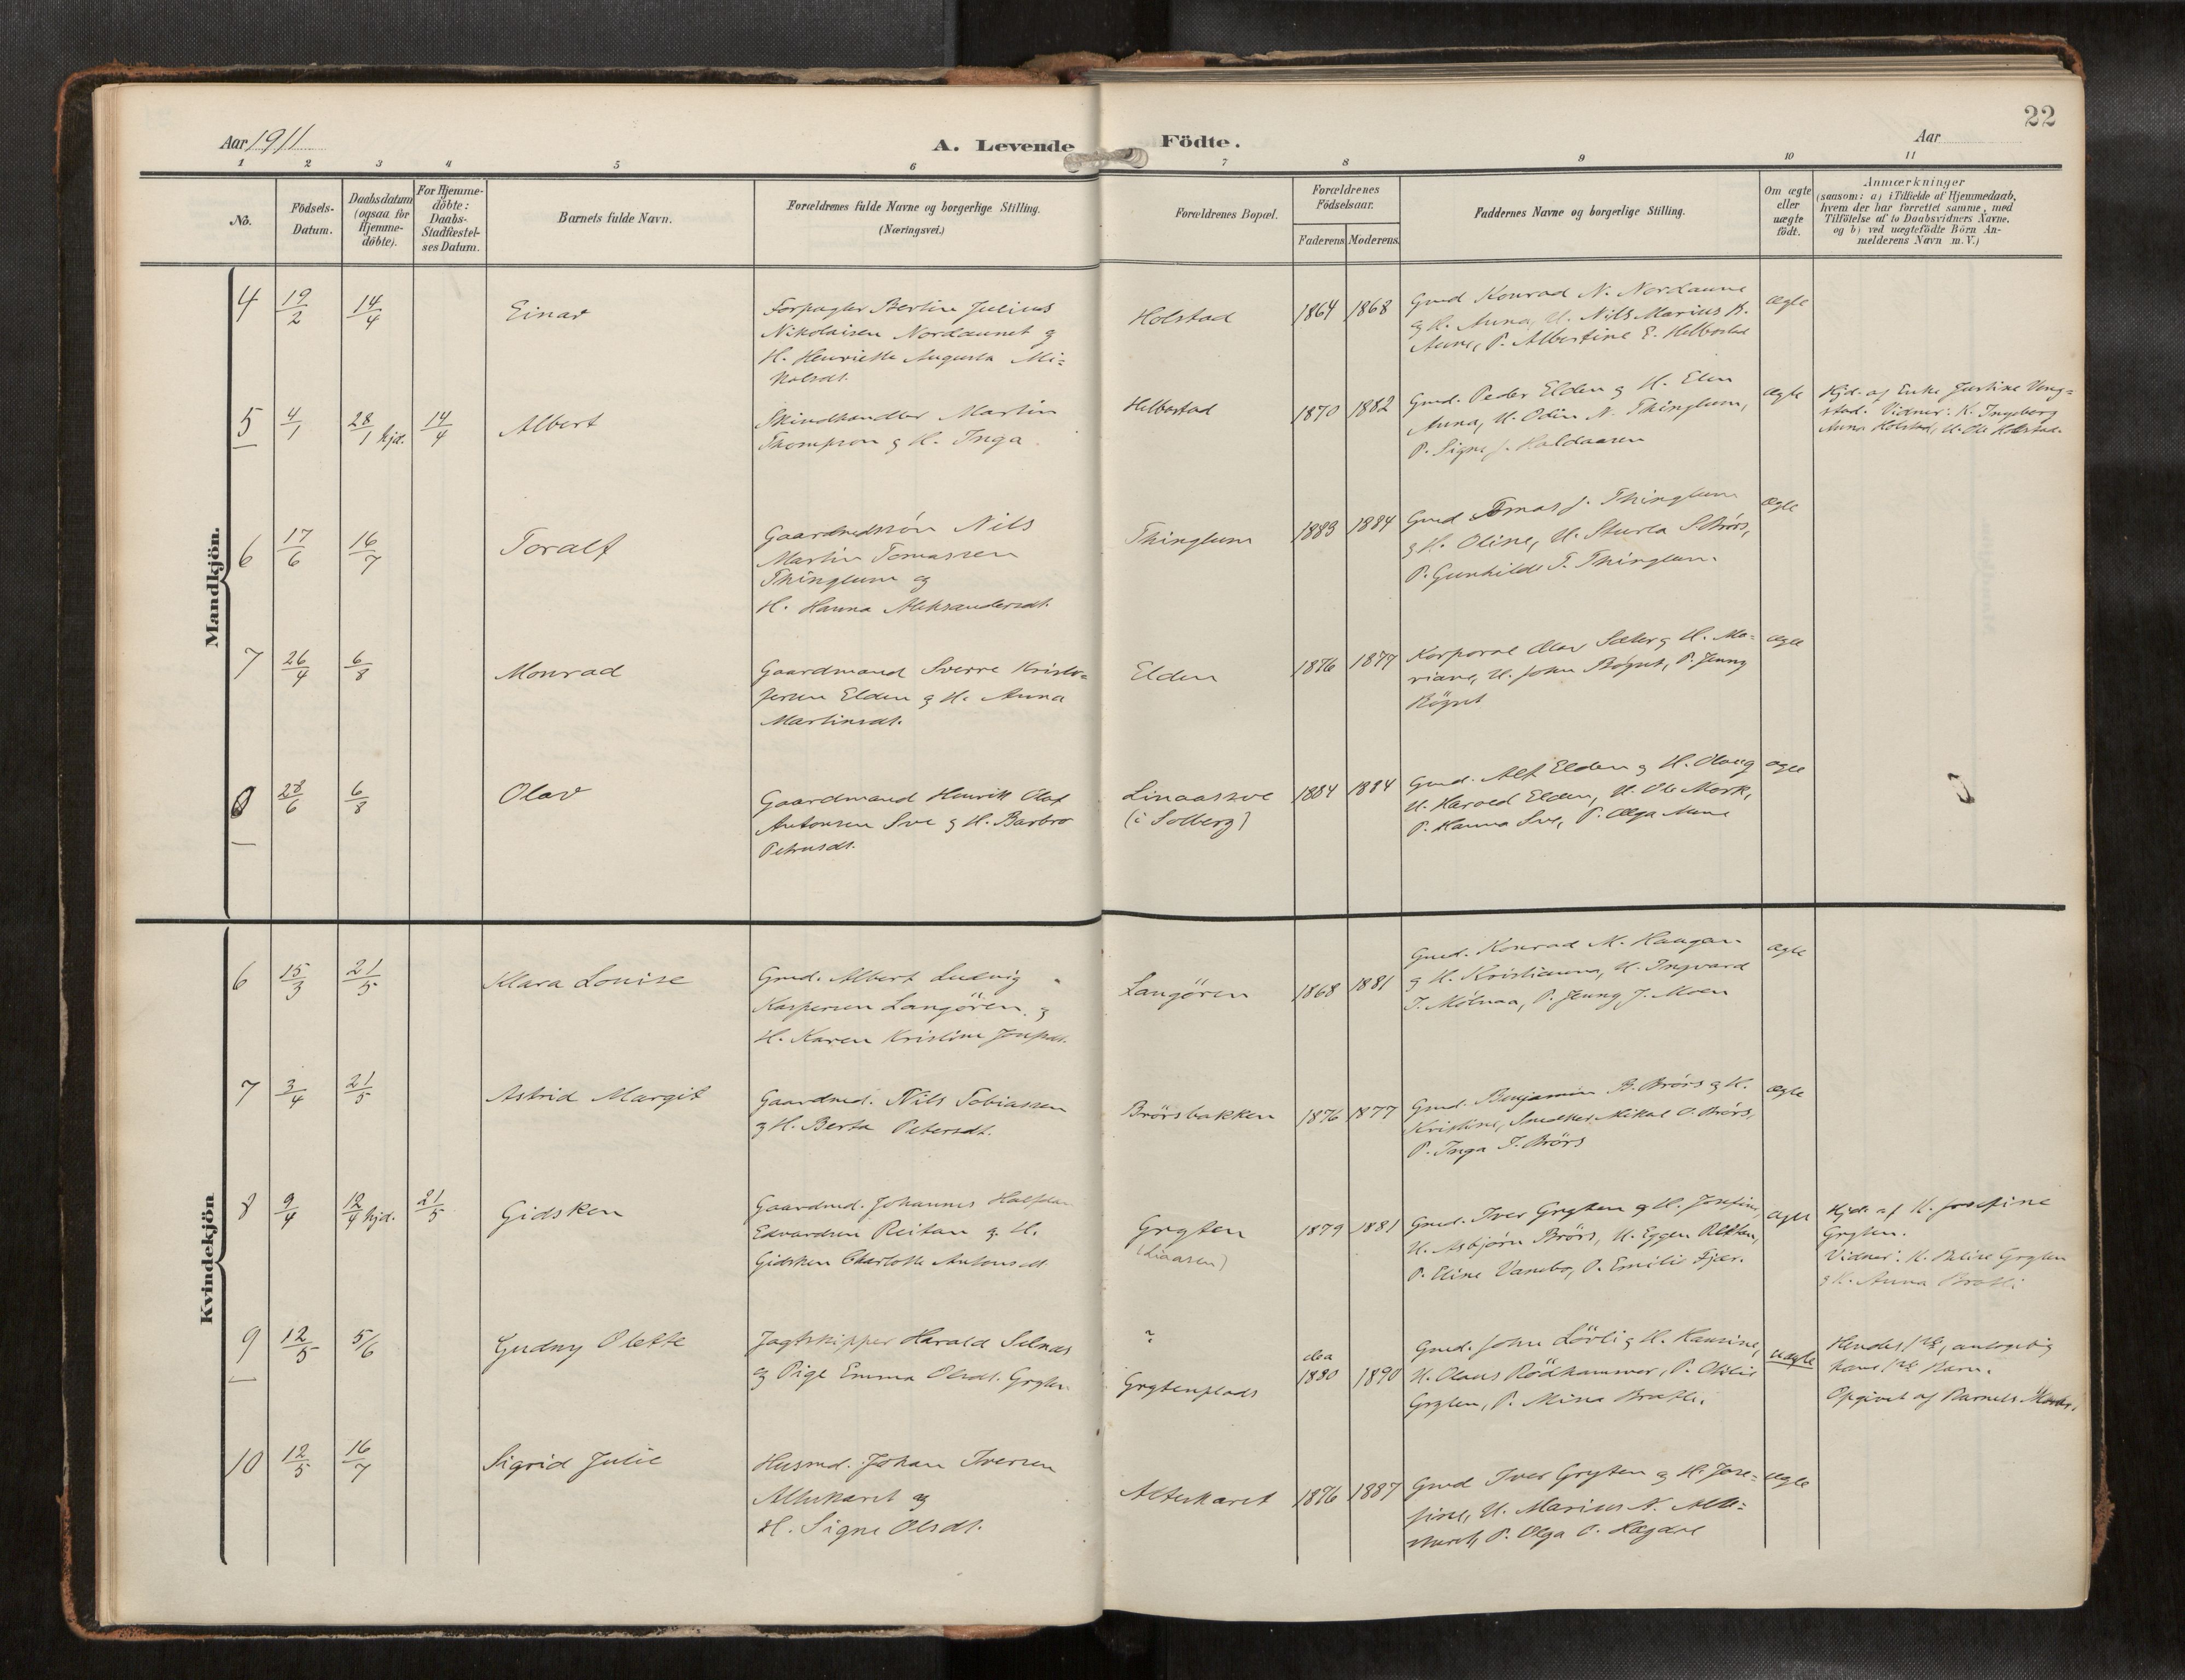 22
Aar 1911
A. Levende Födte.
Aar
1 2 3 4 5 6 7 8 9 10 11
No.
Födsels-
Datum.
Daabsdatum
(ogsaa for
Hjemme-
döbte).
For Hjemme-
döbte:
Daabs-
Stadfæstel-
ses Datum.
Barnets fulde Navn.
Forældrenes fulde Navne og borgerlige Stilling.
(Næringsvei.)
Forældrenes Bopæl.
Forældrenes
Födselsaar.
Faderens. Moderens.
Faddernes Navne og borgerlige Stilling.
Om ægte
eller
uægte
födt.
Anmærkninger
(saasom: a) i Tilfælde af Hjemmedaab,
hvem der har forrettet samme, med
Tilföielse af to Daabsvidners Navne,
og b) ved uægtefödte Börn An-
melderens Navn m.V.)
Mandkjön.
4 19/2 14/4 Einar
Forpagter Bertin Julius
Nikolaisen Nordaunet og
H. Henriette Augusta Mi=
kalsdt.
Holstad 1864 1868
Gmd Konrad N. Nordaune
og H. Anna, U. Nils Marius B.
Aune, P. Albertine E. Helbostad
ægte
5 4/1 28/1 hjd. 14/4 Albert
Skindhandler Martin
Thompson og H. Inga
Helbostad 1870 1882
Gmd. Peder Elden og H. Elen
Anna, U. Odin N. Thinglum,
P. Signe J. Haldaasen
ægte
Hjd. af Enke Justine Veng=
stad. Vidner: K. Ingeborg
Anna Holstad, U. Ole Holstad.
6 17/6 16/7 Toralf
Gaardmdssön Nils
Martin Tomassen
Thinglum og
H. Hanna Aleksandersdt.
Thinglum 1883 1884
Gmd Tomas J. Thinglum
og H. Oline, U. Sturla S. Brörs,
P. Gunhilde T. Thinglum.
ægte
7 26/4 6/8 Monrad
Gaardmand Sverre Kristo=
fersen Elden og H. Anna
Martinsdt.
Elden 1876 1877
Korporal Olav Sæter og H. Ma=
riane, U. John Bögset, P. Jenny
Bögset
ægte
8 28/6 6/8 Olav
Gaardmand Henrik Olaf
Antonsen Sve og H. Barbro
Petrusdt.
Linaassve
(i Solberg)
1884 1884
Gmd. Alf Elden og H. Olaug
U. Harald Elden, U. Ole Mork,
P. Hanna Sve, P. Olga Aune
ægte
Kvindekjön
6 15/3 21/5 Klara Louise
Gmd. Albert Ludvig
Kaspersen Langören og
H. Karen Kristine Josefsdt.
Langören 1868 1881
Gmd. Konrad M. Haugan
og H. Kristianna, U. Ingvard
T. Mölnaa, P. Jenny J. Moen
ægte
7 3/4 21/5 Astrid Margit
Gaardmd. Nils Tobiassen
og H. Berta Petersdt.
Brörsbakken 1876 1877
Gmd. Benjamin B. Brörs og H.
Kristine, Snedker Mikal O. Brörs,
P. Inga J. Brörs
ægte
8 9/4 12/4 hjd. 21/5 Gidsken
Gaardmd. Johannes Halfdan
Edvardsen Reitan og H.
Gidsken Charlotte Antonsdt.
Grytten
(Liaasen)
1879 1881
Gmd. Iver Grytten og H. Josefine,
U. Asbjörn Brörs, U. Eggen Reitan,
P. Eline Vanebo, P. Emilie Fjær.
ægte
Hjd. af K. Josefine
Grytten.
Vidner: K. Eline Grytten
og K. Anna Bratli.
9 12/5 5/6 Gudny Olette
Jagtskipper Harald Selnæs
og Pige Emma Olsdt. Grytten
?
Grytenplads
cka
1880 1890
Gmd. John Lövli og H. Hansine,
U. Olaus Rödhammer, P. Otilie
Grytten, P. Mina Bratli.
uægte
Hendes 1ste, antagelig
hans 1ste Barn.
Opgivet af Barnets Moder.
10 12/5 16/7 Sigrid Julie
Husmd. Johan Iversen
Alteskaret og
H. Signe Olsdt.
Alteskaret 1876 1887
Gmd Iver Grytten og H. Jose=
fine, U. Marius N. Alte=
skaret, P. Olga O. Hagdal
ægte